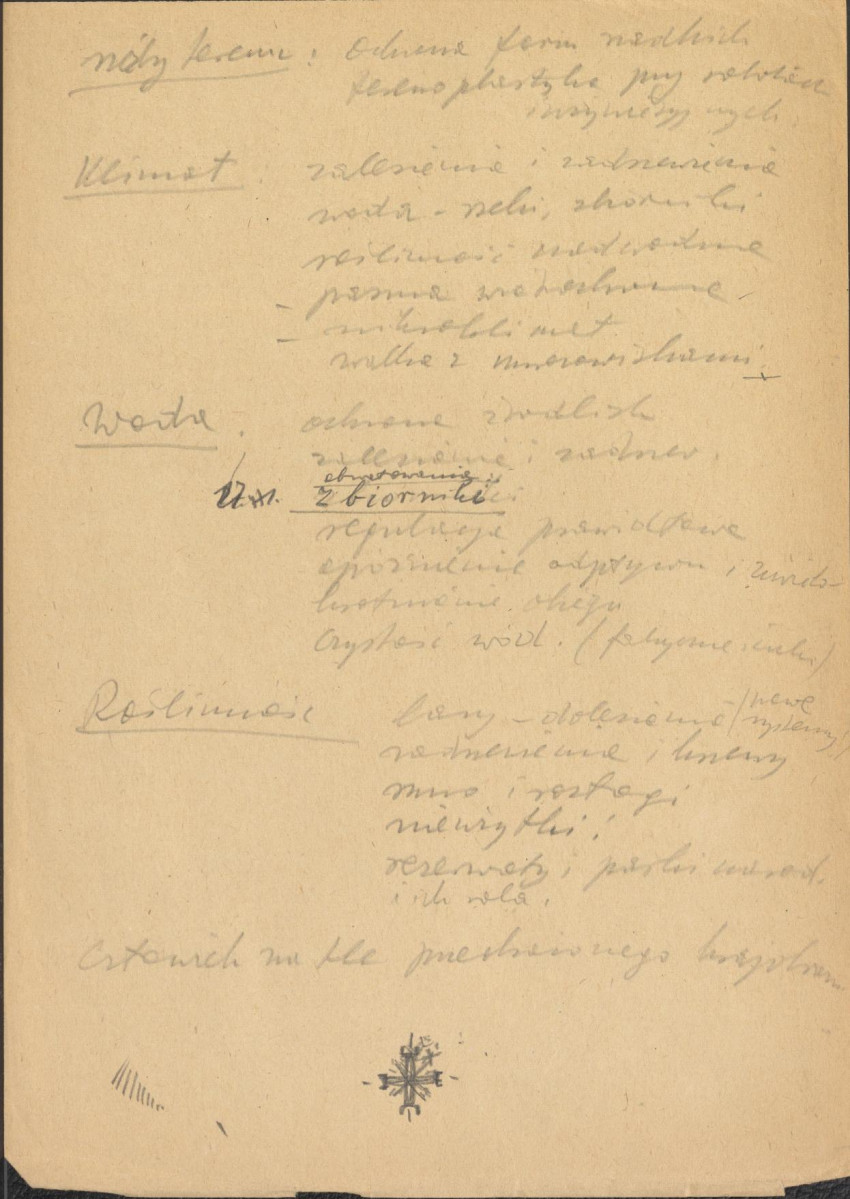 terenu : ochrona form rzadkich
terenoplastyka przy robotach
inżynieryjnych.
Klimat : zalesienia i zadrzewienia
woda - rzeki, zbiorniki
roślinność nadwodna
- pasma wiatrochronne
- mikroklimat
walka z mrozowiskami
Woda : ochrona źródlisk
zalesienia i zadrzew.
obwałowania
zbiorniki
regulacja prawidłowa
opóźnienie odpływu i zwielo-
krotnienie obiegu
Czystość wód. (fabryczne ścieki)
Roślinność lasy - dolesienia (nowe
systemy)
zadrzewienia i krzewy
nieużytki!
rezerwaty i parki narod.
i ich rola.
Człowiek na tle przetworzonego krajobrazu